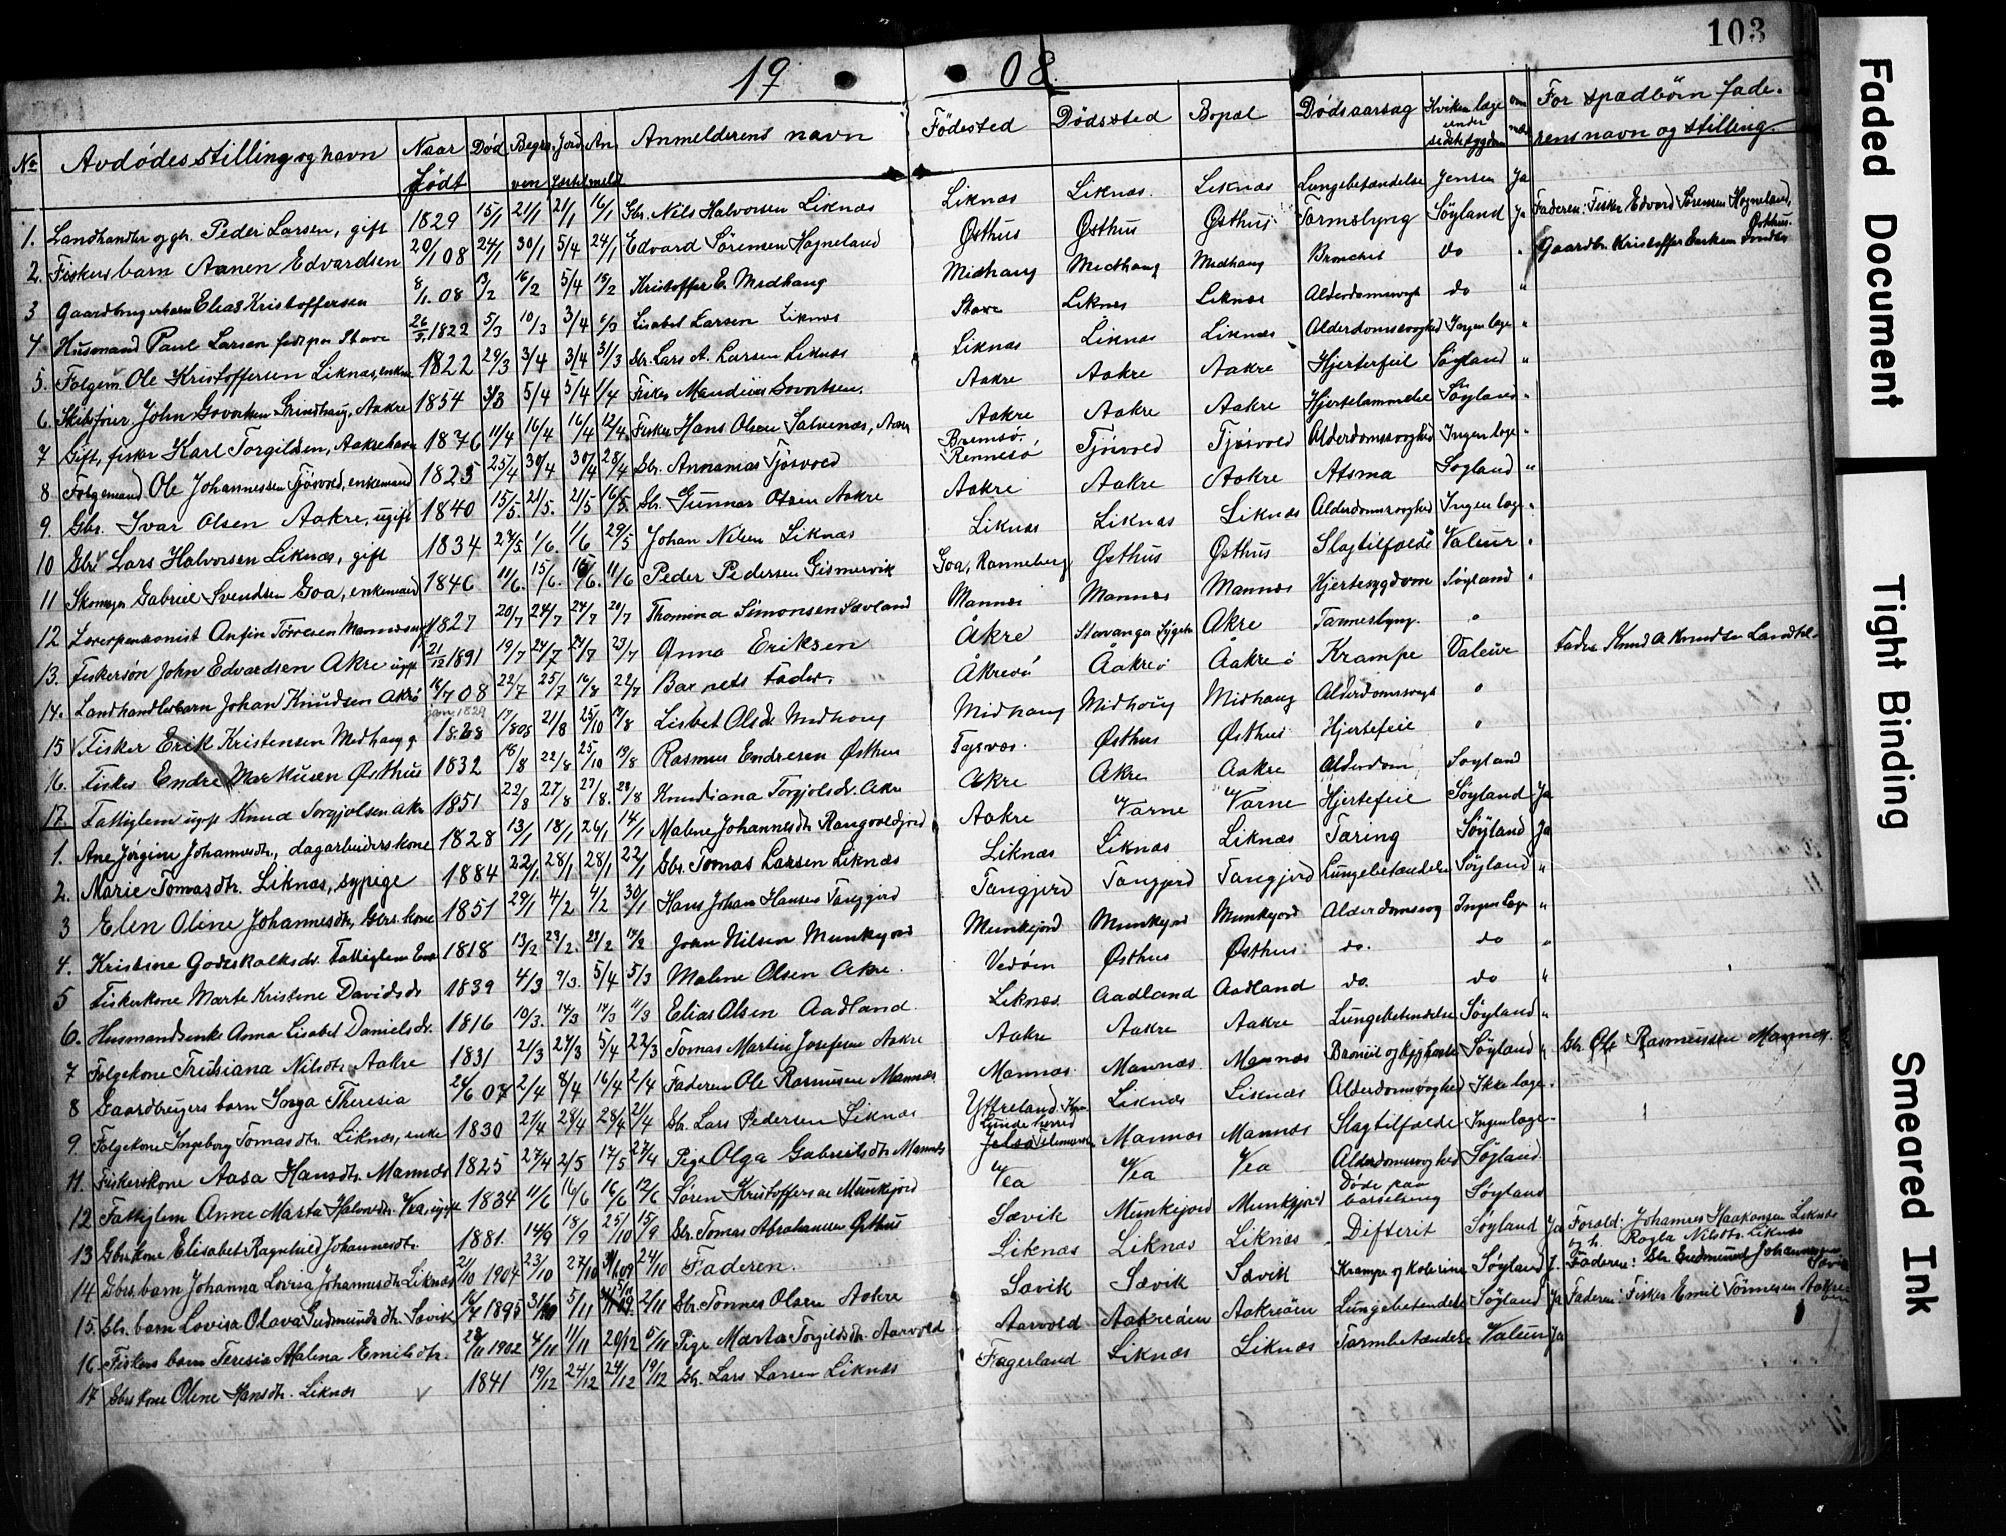 103
19 08.
No Avdødes stilling og navn Naar født Død Begra. ven Jord fæstet An meldt Anmelderens navn Fødested Dødssted Bopæl Dødsaarsag Hvilken læge under sidste sygdom For spædbørn faderens navn og stilling.
1. Landhandler og gbr. Peder Larsen, gift 1829 15/1 21/1 21/1 16/1 Gbr. Nils Halvorsen Liknæs Liknæs Liknæs. Liknæs Lungebetændelse Jensen Ja
2. Fiskers barn Aanen Edvardsen 20/1 08 24/1 30/1 5/4 24/1 Edvard Sørensen Høgneland Østhus Østhus Østhus Tarmslyng Søyland Ja Faderen: Fisker Edvard Sørensen Høgneland, Østhus.
3 Gaardbrugerbarn Elias Kristoffersen 8/1. 08 13/2 16/2 5/4 15/2 Kristoffer E. Medhaug Midhaug Medhaug Medhaug Bronchit do " Gaardbr. Kristoffer
4 Husmand Paul Larsen født paa Stave 26/3 1822 5/3 10/3 3/4 6/3 Lisabet Larsen Liknæs Stave Liknes Liknæs Alderdomssvagh do "
5. Følgem. Ole Kristoffersen Liknæs, enkem 1822 29/3 3/4 3/4 31/3 Gbr. Lars A. Larsen Liknæs Liknæs Liknæs Liknæs Alderdomssvaghed Ingen læge "
6. Skibsfører John Govertsen Grindhaug, Aakre 1854 31/3 5/4 5/4 1/4 Fisker Mandius Govertsen. Aakre Aakre Aakre Hjertefeil Søyland "
7 Gift, fisker Karl Torgilsen, Aakrehavn 1876 11/4 16/4 16/4 12/4 Fisker Hans Olsen Salvenæs, Aakre Aakre Aakre Hjertelammelse Søyland "
8 Følgemand Ole Johannessen Tjøsvold, enkemand 1825 25/4 30/4 30/4 28/4 Gbr. Annanias Tjøsvold Bremsø. Rennesø Tjøsvold Tjøsvold Alderdomssvaghed Ingen læge "
9. Gbr. Ivar Olsen Aakre, ugift 1840 15/5. 21/5. 21/5 16/5. Gbr. Gunnar Olsen Aakre Aakre Aakre Aakre Atsma Søyland "
10 Gbr. Lars Halvorsen Liknæs, gift 1834 27/5 1/6. 1/6 29/5 Johan Nilsen Liknæs Liknæs Liknæs Liknæs Alderdomssvaghed Ingen læge "
11 Skomager Gabriel Svendsen Goa, enkemand 1846 11/6. 15/6. 15/6. 11/6 Peder Pedersen Gismervik Goa, Ranneberg Østhus Østhus Slagtilfælde Valeur "
12 Lærerpensionist Anfin Tørresen Mannes 1827 20/7 24/7 24/7 20/7 Thomina Simonsen Sævland Mannes Mannes Mannes Hjertesygdom Søyland "
13. Fiskersøn John Edvardsen Akre ugift 21/12 1891 19/7 24/7 24/7 23/7 Anna Eriksen Åkre Stavanger Sygeh Akre Tarmeslyng. "
14. Landhandlerbarn Johan Knudsen Akrø 16/7 08 22/7 25/7 16/8 22/7 Barnets fader. Åkreø Åakreø Åakreø Krampe Valeur Fader Knud A Knudsen Landhdl.
15 Fisker Erik Kristensen Medhaug g. jan. 1829 1828 17/8 08 21/8 25/10 17/8 Lisbet Olsdr Medhoug Midhaug Midhoug Midhaug Alderdomssvagh "
16. Fisker Endre Markusen Østhus 1832 18/8 22/8 25/10 19/8 Rasmus Endresen Østhus Tysvær. Østhus Østhus Hjertefeil "
17. Fattiglem ugift Knud Torgjolsen Akre 1851 22/8 27/8 27/8. 28/8 Knudiana Torgjolsdr. Akre Akre Akre Aakre Alderdom Søyland
1. Ane Jørgine Johannesdtr., dagarbeiderskone 1828 13/1 18/1 26/1 14/1 Malene Johannesdtr Rangvaldjord Aakre Varne Varne Hjertefeil Søyland Ja
2. Marie Tomasdtr. Liknæs, sypige 1884 22/1. 28/1 28/1 22/1 Gbr. Tomas Larsen Liknæs Liknæs Liknæs Liknæs Tæring Søyland Ja
3 Elen Oline Johannesdtr, Gbrs. kone 1851 29/1 4/2 4/2 30/1 Hans Johan Hansen Tangjerd Tangjerd Tangjerd Tangjerd Lungebetændelse Søyland "
4. Kristine Godeskalksdr. Fattiglem Enke 1818 13/2 23/2. 23/2 14/2 Johan Nilsen Munkejord Munkejord Munkejord Munkejord Alderdomssvag Ingen læge "
5 Fiskerkone Marte Kristine Davidsdr 1839 4/3 9/3. 5/4 5/3 Malene Olsen Akre. Vedøen Østhus Østhus do. do "
6. Husmandsenke Anna Lisabet Danielsdr. 1816 10/3. 14/3 14/3 11/3 Elias Olsen Aadland. Liknæs Aadland Aadland do. do "
7 Følgekone Tridsiana Nilsdtr Aakre 1831 21/3 27/3 5/4 22/3 Tomas Martin Josefsen Aakre Aakre Aakre Aakre Lungebetendelse Søyland "
8 Gaardbrugers barn Sonja Theresia 26/6 07 2/4 8/4 16/4 2/4 Faderen Ole Rasmussen Mannæs Mannæs. Mannæs Mannæs Bronkit og Kighoste Søyland " Gbr. Ole Rasmussen Mannæs.
9. Følgekone Ingeborg Tomasdtr. Liknæs, enke 1830 21/4 28/4 28/4 21/4 Gbr. Lars Pedersen Liknæs Yttreland Liknæs Liknæs Alderdomsvaghed Ikke læge.
11. Fiskerskone Aasa Hansdtr. Mannæs 1825 27/4 2/5 17/5 27/4 Pige Olga Gabrielsdtr Mannæs Lunde herred Telemarken Mannæs Mannæs Slagtilfælde Ingen læge.
12 Fattiglem Anne Marta Halvordtr. Vea, ugift 1834 11/6 16/6 16/6 12/6 Søren Kristoffersen Munkejord Vea Vea Vea Alderdomssvaghed Søyland.
13 Gbrs kone Elisabet Ragnhild Johannesdtr. 1881. 14/9 18/9 25/10 15/9 Gbr. Tomas Abrahamsen Østhus Sævik Munkejord Munkejord Døde paa barselseng Søyland
14. Gbrs. barn Johanna Lovisa Johannesdtr Liknæs 21/10 1904 23/10 27/10 24/10 Faderen. Liknæs Liknæs Liknæs Difterit Søyland Ja Foræld: Johannes Haakonsen Liknæs og h. Ragla Nilsdtr. Liknæs
15. Gbr. barn Lovisa Olava Gudmundsdtr. Sævik 1895 31/10 5/11 2/11 Gbr. Tønnes Olsen Aakre Sævik Sævik Sævik Krampe og Søyland J. Faderen: Gbr. Gudmund Johannessen Sævik
16. Fiskers barn Teresia Malena Emilsdtr. 28/11 1902 4/11 11/11 20/12 5/11 Pige Marta Torgilsdtr. Aarvold Aarvold Aakreøen Aakreøen Lungebetendelse Søyland Ja Faderen: Fisker Emil Tønnesen Aakreøen
17 Gbrs kone Oline Hansdtr. Liknæs 1841 19/12 24/12 24/12 19/12 Gbr. Lars Larsen Liknæs Fagerland Liknæs Liknæs Tarmbetændelse Valeur Ja
Faded Document
Tight Binding
Smeared Ink